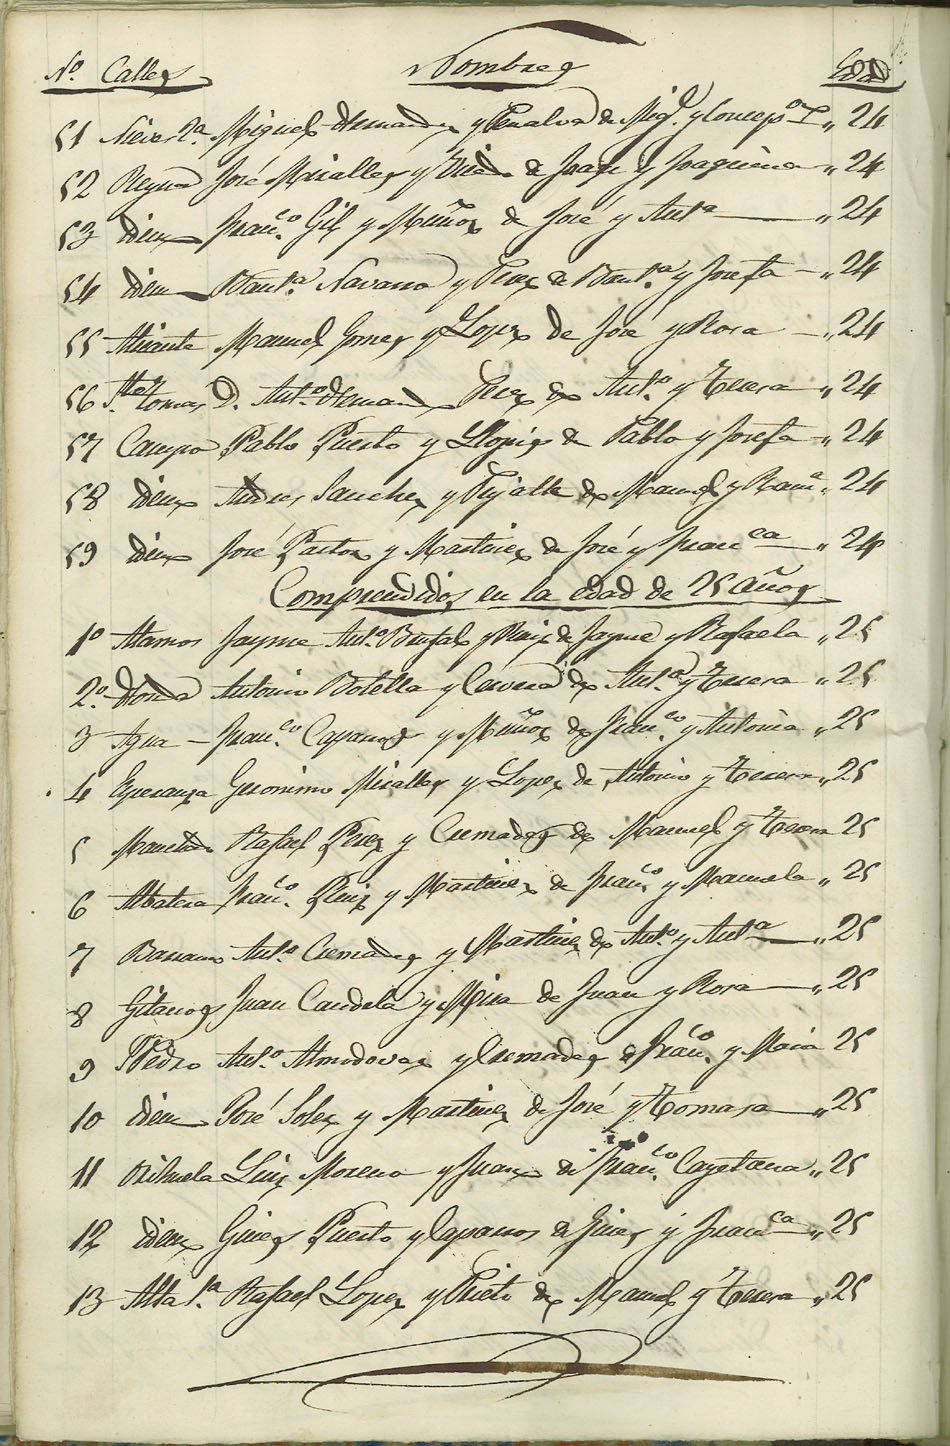 Nº Calles Nombres Edad
51 Nieves 2ª Miguel Hernandez y Penalva de Mig.l y Concep.on „ 24
52 Reyna José Miralles y de José y Joaquina „ 24
53 idem Fran.co Gil y Muñoz de José y Ant.a „ 24
54 idem Baut.a Navarro y Perez de Baut.a y Josefa „ 24
55 Alicante Manuel Gomez y Lopez de José y Rosa „ 24
56 Sto. Tomas D. Ant.o Hernandez Perez de Ant.o y Teresa „ 24
57 Campo Pablo Puerto y Llopis de Pablo y Josefa „ 24
58 idem Andres Sanchez y de Manuel y Ram.a „ 24
59 idem José Pastor y Martinez de José y Fran.ca „ 24
Comprendidos en la edad de 25 años
1º Alamos Jayme Ant.o y Ruiz de Jayme y Rafaela „ 25
2º Honda Antonio Botella y Cervera de Ant.o y Teresa „ 25
3 Agua Fran.co Caparros y Muñoz de Fran.co y Antonia „ 25
4 Esperanza Geronimo Miralles y Lopez de Antonio y Teresa „ 25
5 Rafael Perez y Cremades de Manuel y Teresa 25
6 Albatera Fran.co Ruiz y Martinez de Fran.co y Manuela „ 25
7 Barranco Ant.o Cremades y Martinez de Ant.o y Ant.a „ 25
8 Gitanos Juan Candela y Mira de Juan y Rosa „ 25
9 S. Pedro Ant.o Almodovar y Cremades de Fran.co y Maria 25
10 idem José Soler y Martinez de José y Tomasa „ 25
11 Orihuela Luis Moreno y Juan de Fran.co Cayetana „ 25
12 idem Gines Puerto y Caparros de Gines y Fran.ca „ 25
13 Alta 1.a Rafael Lopez y Prieto de Manuel y Teresa „ 25